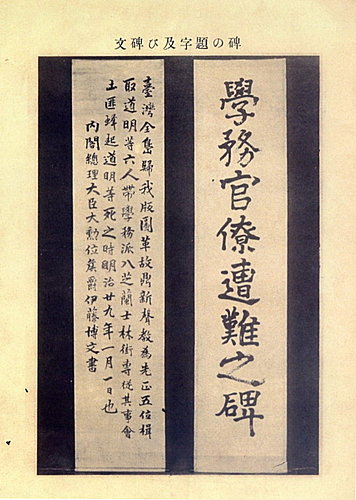 碑の題字及び碑文
學務官僚遭難之碑
臺灣全島歸我版圖革故鼎新聲教為先正五位楫
取道明等六人帶學務派八芝蘭士林街專從其事會
土匪蜂起道明等死之時明治廿九年一月一日也
内閣總理大臣大勳位矦爵伊藤博文書